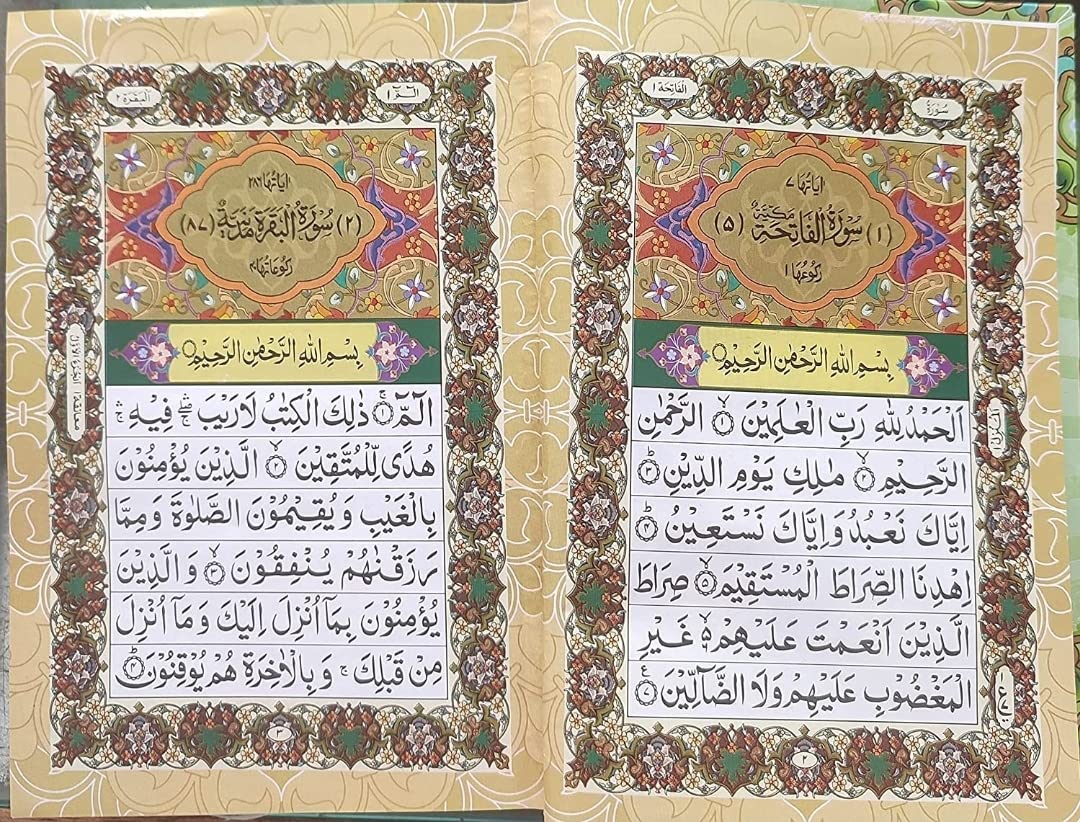 سُوْرَةُ
الفَاتِحَة ١
اٰيَاتُهَا ٧
(١) سُوْرَةُ الْفَاتِحَةِ مَكِّيَّةٌ (٥)
رُكُوْعُهَا ١
بِسْمِ اللهِ الرَّحْمٰنِ الرَّحِيْمِ
اَلْحَمْدُ لِلّٰهِ رَبِّ الْعٰلَمِيْنَ ۙ﴿١﴾ الرَّحْمٰنِ
الرَّحِيْمِ ۙ﴿٢﴾ مٰلِكِ يَوْمِ الدِّيْنِ ؕ﴿٣﴾
اِيَّاكَ نَعْبُدُ وَاِيَّاكَ نَسْتَعِيْنُ ؕ﴿٤﴾
اِهْدِنَا الصِّرَاطَ الْمُسْتَقِيْمَ ۙ﴿٥﴾ صِرَاطَ
الَّذِيْنَ اَنْعَمْتَ عَلَيْهِمْ ۙ۬ غَيْرِ
الْمَغْضُوْبِ عَلَيْهِمْ وَلَا الضَّآلِّيْنَ ﴿٧﴾ ع
٢
الٓمّٓ ١
اَلْبَقَرَة ٢
اٰيَاتُهَا ٢٨٦
(٢) سُوْرَةُ الْبَقَرَةِ مَدَنِيَّةٌ (٨٧)
رُكُوْعَاتُهَا ٤٠
بِسْمِ اللهِ الرَّحْمٰنِ الرَّحِيْمِ
الٓمّٓ ۚ﴿١﴾ ذٰلِكَ الْكِتٰبُ لَا رَيْبَ ۛۖ فِيْهِ ۛۚ
هُدًى لِّلْمُتَّقِيْنَ ۙ﴿٢﴾ الَّذِيْنَ يُؤْمِنُوْنَ
بِالْغَيْبِ وَيُقِيْمُوْنَ الصَّلٰوةَ وَمِمَّا
رَزَقْنٰهُمْ يُنْفِقُوْنَ ۙ﴿٣﴾ وَالَّذِيْنَ
يُؤْمِنُوْنَ بِمَاۤ اُنْزِلَ اِلَيْكَ وَمَاۤ اُنْزِلَ
مِنْ قَبْلِكَ ۚ وَبِالْاٰخِرَةِ هُمْ يُوْقِنُوْنَ ؕ﴿٤﴾
٣